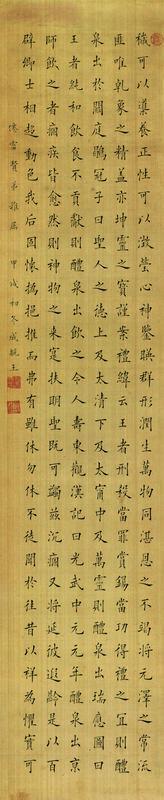 穢可以導養正性可以澂瑩心神鑒暎群形潤生萬物同湛恩之不竭將元澤之常流
匪唯乾象之精蓋亦坤靈之寶謹案禮緯云王者刑殺當罪賞錫當功得禮之宜則醴
泉出於闕庭鶡冠子曰聖人之德上及太清下及太寧中及萬靈則醴泉出瑞應圖曰
王者純和飲食不貢獻則醴泉出飲之令人壽東觀漢記曰光武中元元年醴泉出京
師飲之者痼疾皆愈然則神物之來寔扶明聖既可蠲茲沉痼又將延彼遐齡是以百
辟卿士相趨動色我后固懷撝挹推而弗有雖休勿休不徒聞於往昔以祥為懼實可
雪賢弟雅屬 甲戌初冬 成親王